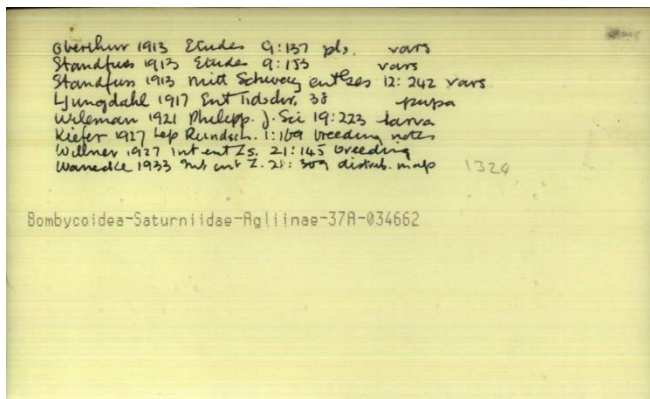 Oberthur 1913 Etudes 9:137 pls. vars
Standfuss 1913 Etudes 9:153 vars
Standfuss 1913 Mitt Schweiz ent Ges 12:242 vars
Ljungdahl 1917 Ent Tidskr. 38 pupa
Wileman 1921 Philipp. J. Sci 19:223 larva
Kiefer 1927 Lep Rundsch. 1:169 breeding notes
Willner 1927 Int ent Zs. 21:145 breeding
Warnecke 1933 Int ent Z. 21:309 distrib. map 1324
Bombycoidea-Saturniidae-Agliinae-37A-034662